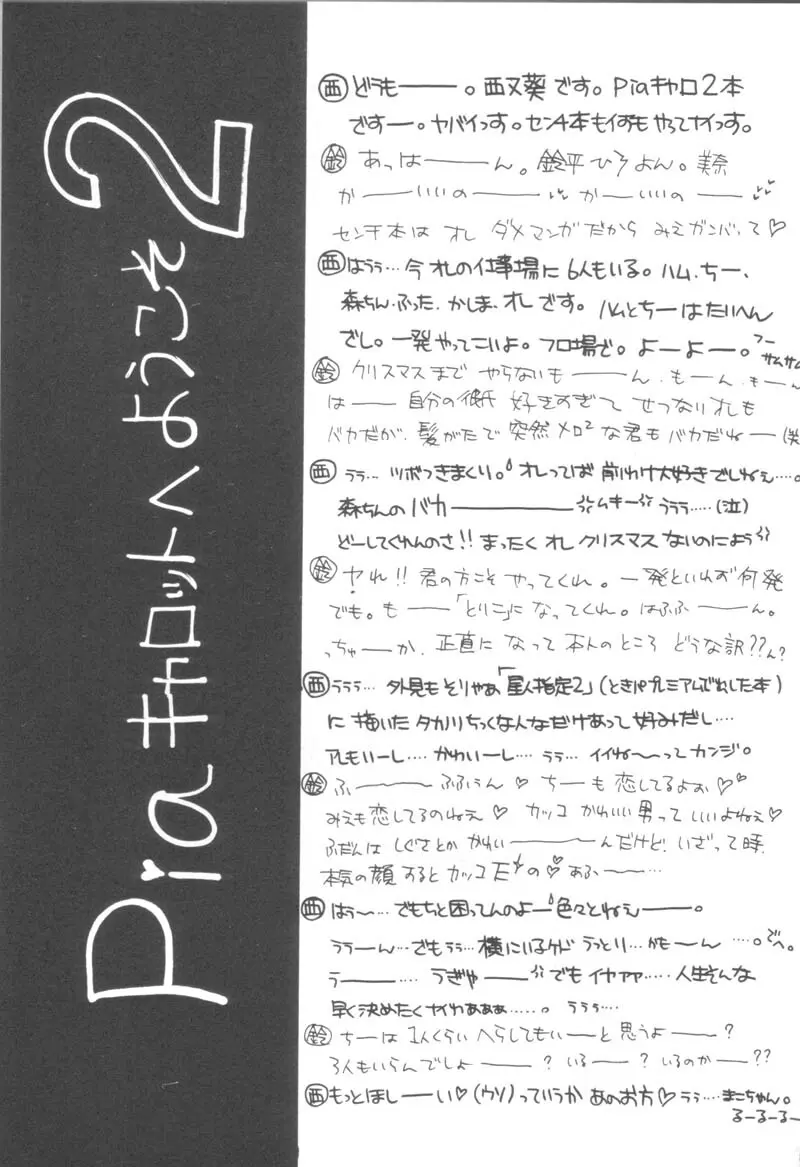 Piaキャロットへようこそ2
西 どうも──。西又葵です。Piaキャロ2本
です─。ヤバイっす。センチ本もイラストもやってナイっす。
鈴 あっは───ん。鈴平ひろよん。美奈
か──いいの───か─いいの──
センチ本は オレ ダメマンガだから みえガンバって♡
西 はうぅ…今オレの仕事場に6人もいる。ハム、ちー、
森ちん、ふった、かしま、オレです。ハムとちーはたいへん
だし。一発やってこいよ。フロ場で。よーよー。フーサムサム
鈴 クリスマスまで やらないも──ん、も─ん、も─ん
は── 自分の彼氏 好きすぎて せつなりオレも
バカだが、髪がたで突然メロ²な君もバカだねー(笑
西 うぅ…ツボつきまくり。オレってば 前わけ大好きでしねぇ…。
森ちんのバカ─────ムキー うぅぅ……(泣)
どーしてくれんのさ!!まったく オレ クリスマス ないのによう
鈴 ヤれ!! 君の方こそ やってくれ。一発といわず何発
でも。も──「とりこ」になってくれ。はふふ──ん。
っちゅーか、正直になって本人のところ どうな訳??ん?
西 うぅぅ…外見もそりゃあ「星人指定2」(ときパプレミアムでだした本)
に 描いた タカノリちっくな人なだけあって好みだし…
アレもいーし…かわいーし…うぅ…イイね〜ってカンジ。
鈴 ふ───ふふぅん♡ ちーも恋してるよぉ♡
みえも恋してるのねぇ♡ カッコ かわいい男って いいよねぇ♡
ふだんは しぐさとか かわい────んだけど!いざって時、
本気の顔するとカッコEの♡ あふ──…
西 はぅ〜…でもちと困ってんのよー色々とねぇ──。
うぅーん…でもうぅ…横にいるケド うっとり…かも─ん…。でへ。
う──…うぎゃ──でもイヤァァ……人生そんな
早く決めたくナイわぁぁぁ……。うぅぅ…
鈴 ちーは 1人くらい へらしてもい─と思うよ──?
3人もいらんでしょ──?いる─?いるのか─??
西 もっとほし──い♡(ウソ)っていうか あのお方♡うぅ…まこちゃん。
る─る─る─